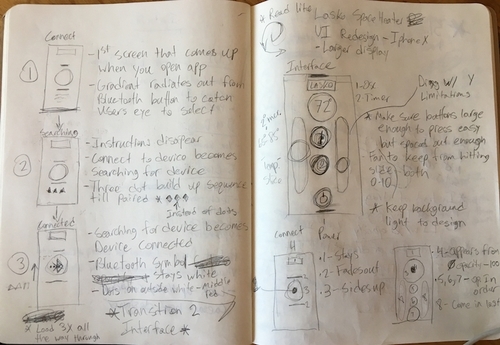 Connect
1
- 1st screen that comes up
when you open app
- Gradient radiates out from
Bluetooth button to catch
Users eye to select
Searching
2
- Instructions disapear
- Connect to device becomes
Searching for device
- Three dot build up sequence
till paired
Instead of dots
Connected
3
- Searching for device becomes
Device connected
- Bluetooth Symbol
stays white
- Dots on outside white - Middle
Red
* Transition 2
Interface *
* Load 3X all
the way through
* Read like
Lasko Space Heater
UI Redesign - Iphone X
- Larger display
Interface
LASKO
72
2 Timer
Limitations
* Make sure buttons large
enough to press easy
but spaced out enough
to keep from hitting
both
0-10
* Keep background
light to design
Connect
Power
1 - Stays
2 - Fades out
3 - Slides up
4 - appairs from
5, 6, 7 - op in
order
8 - Come in last